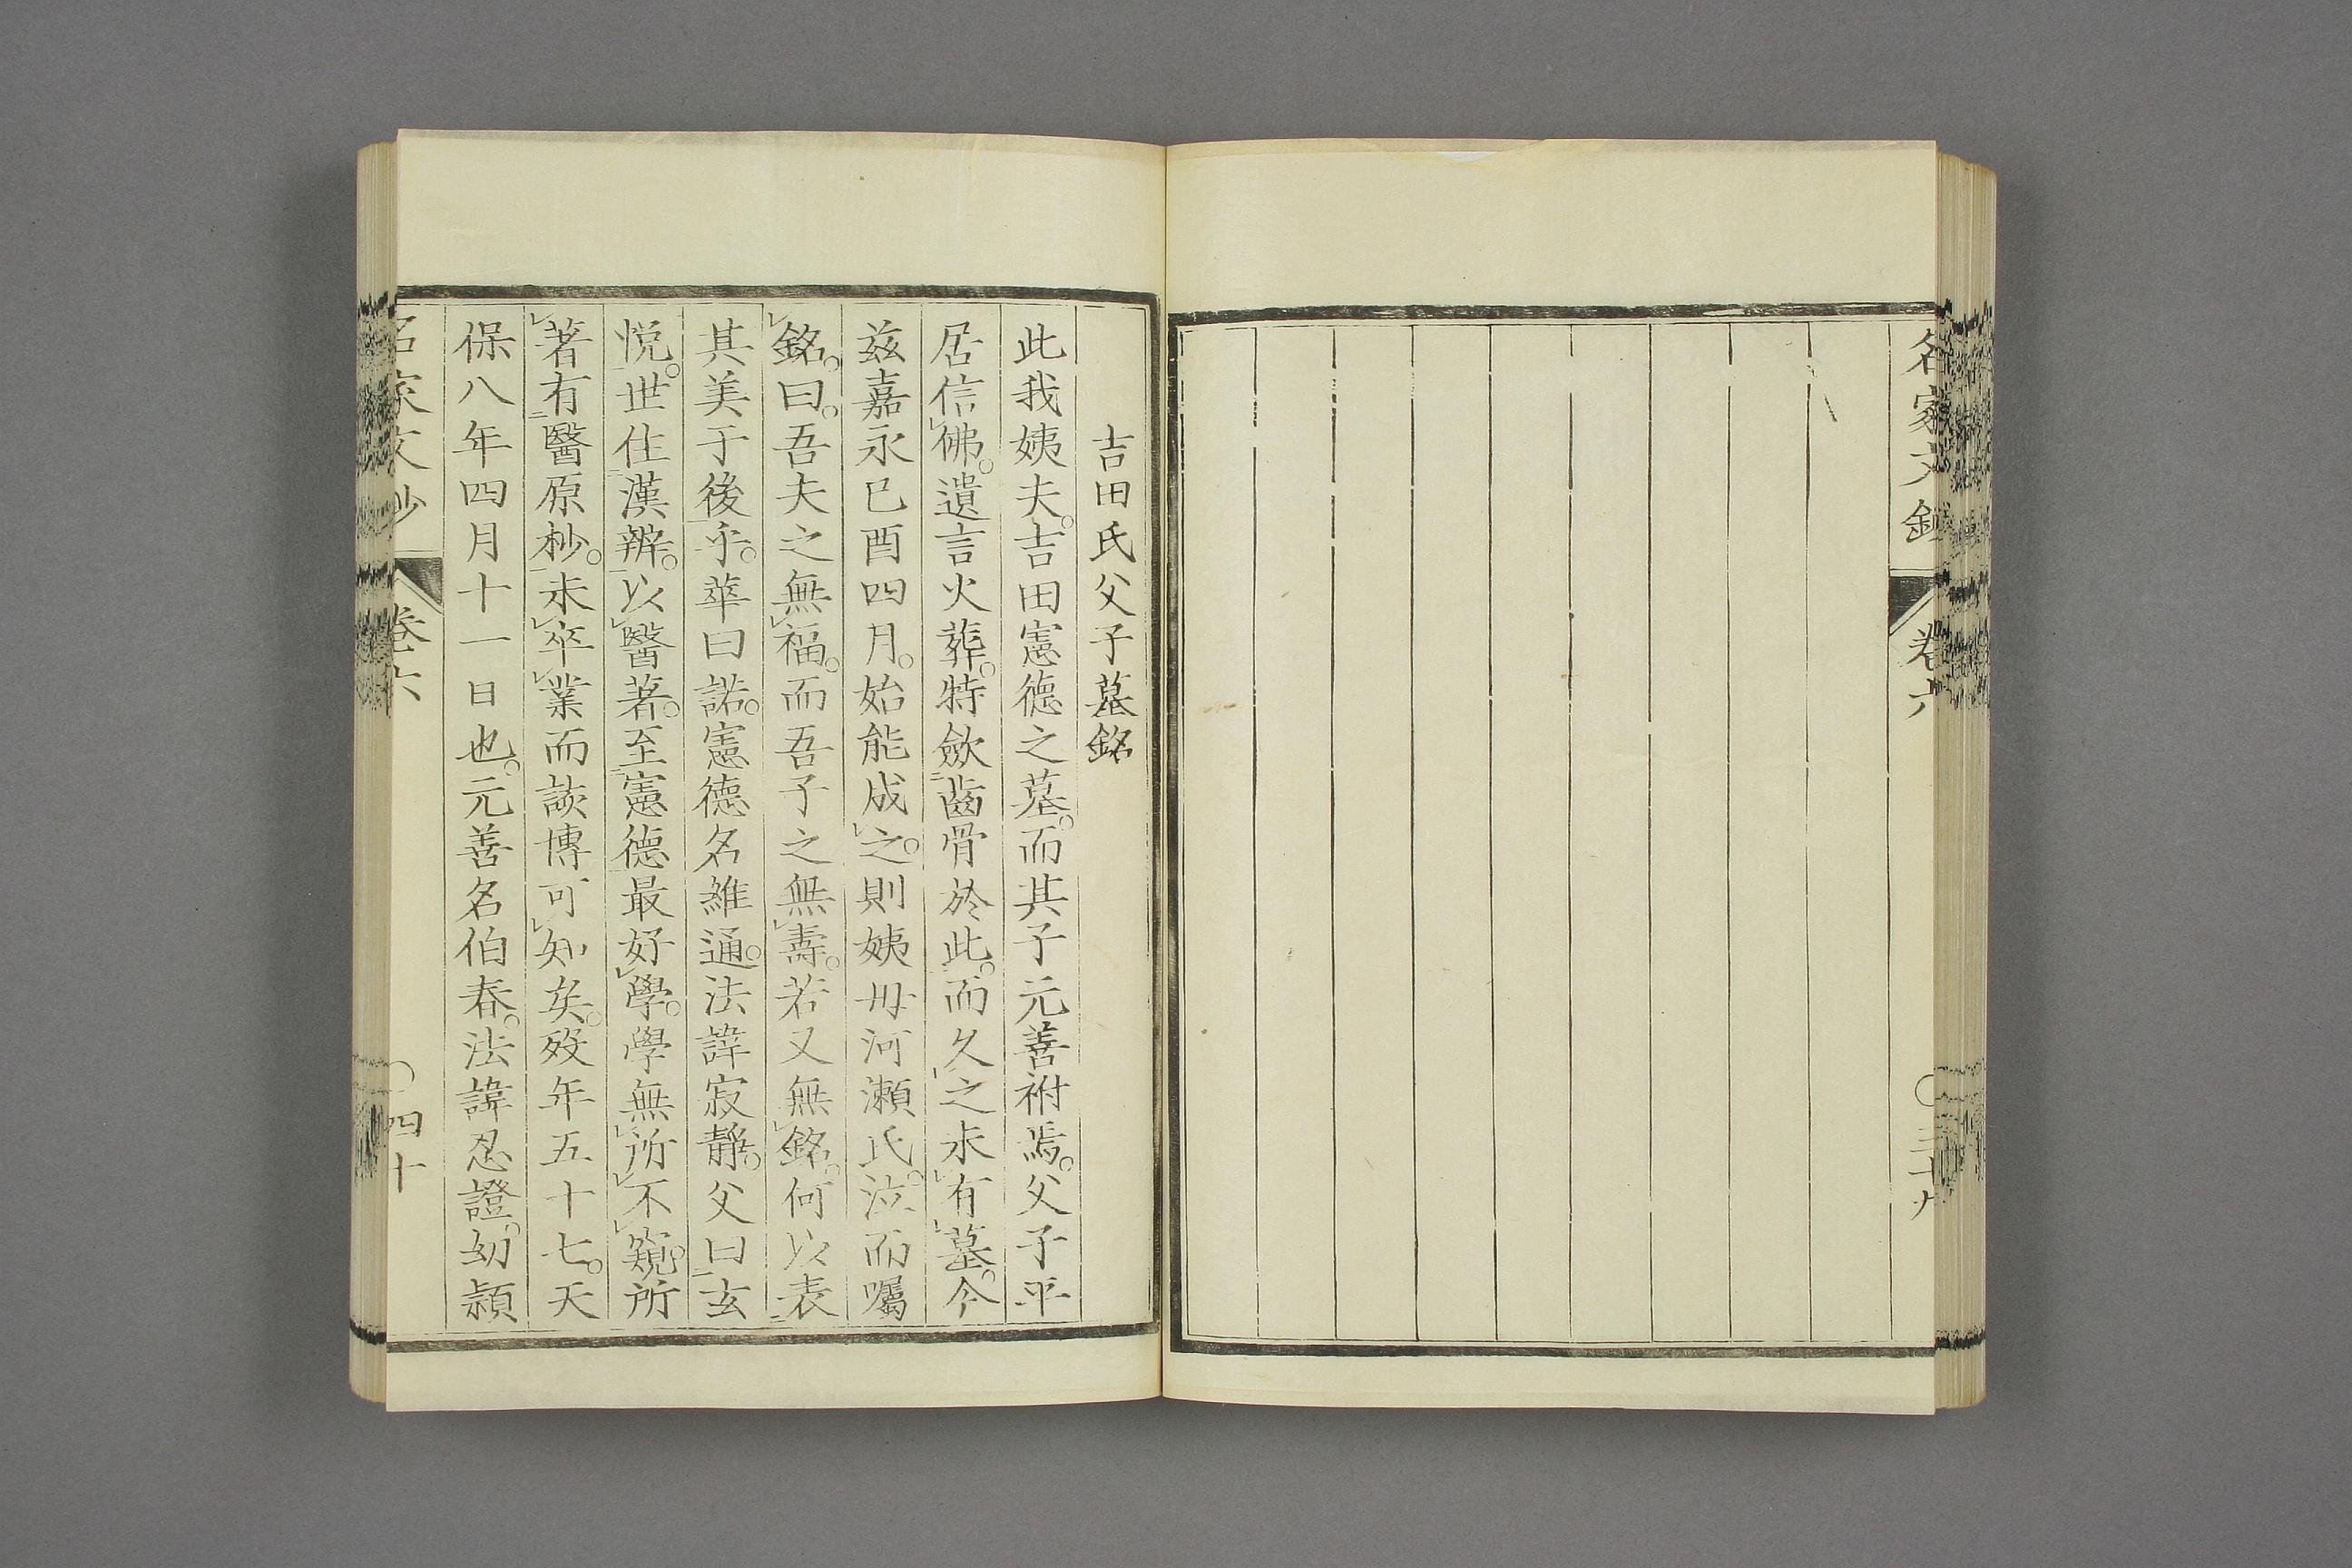 名家文鈔
卷六
〇三十九
吉田氏父子墓銘
此我姨夫。吉田憲德之墓。而其子元善祔焉。父子平
居信佛。遺言火葬。特斂齒骨於此。而久之未有墓。今
茲嘉永己酉四月。始能成之。則姨毋河瀨氏。泣而囑
銘。曰。吾夫之無福。而吾子之無壽。若又無銘。何以表
其美于後乎。華曰諾。憲德名維通。法諱寂靜。父曰玄
悦。世住漢辨。以醫著。至憲德最好學。學無所不窺。所
著有醫原杪。未卒業而該博可知矣。歿年五十七。天
保八年四月十一日也。元善名伯春。法諱忍證。幼穎
名家文鈔
卷六
〇四十